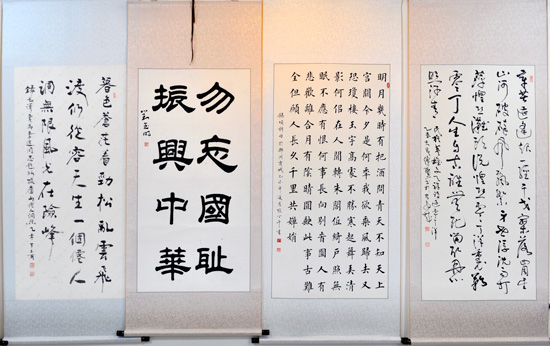 辛苦遭逢起一經干戈寥落四周星
山河破碎風飄絮身世浮沉雨打
萍惶恐灘頭說惶恐零丁洋裏歎
零丁人生自古誰無死留取丹心
照汗青
明月幾時有把酒問青天不知天上
宮闕今夕是何年我欲乘風歸去又
恐瓊樓玉宇高處不勝寒起舞弄清
影何似在人間轉朱閣低綺戶照無
眠不應有恨何事長向別時圓人有
悲歡離合月有陰晴圓缺此事古難
全但願人長久千里共嬋娟
勿忘國耻
振興中華
暮色蒼茫看勁松亂雲飛
渡仍從容天生一個僊人
洞無限風光在險峰